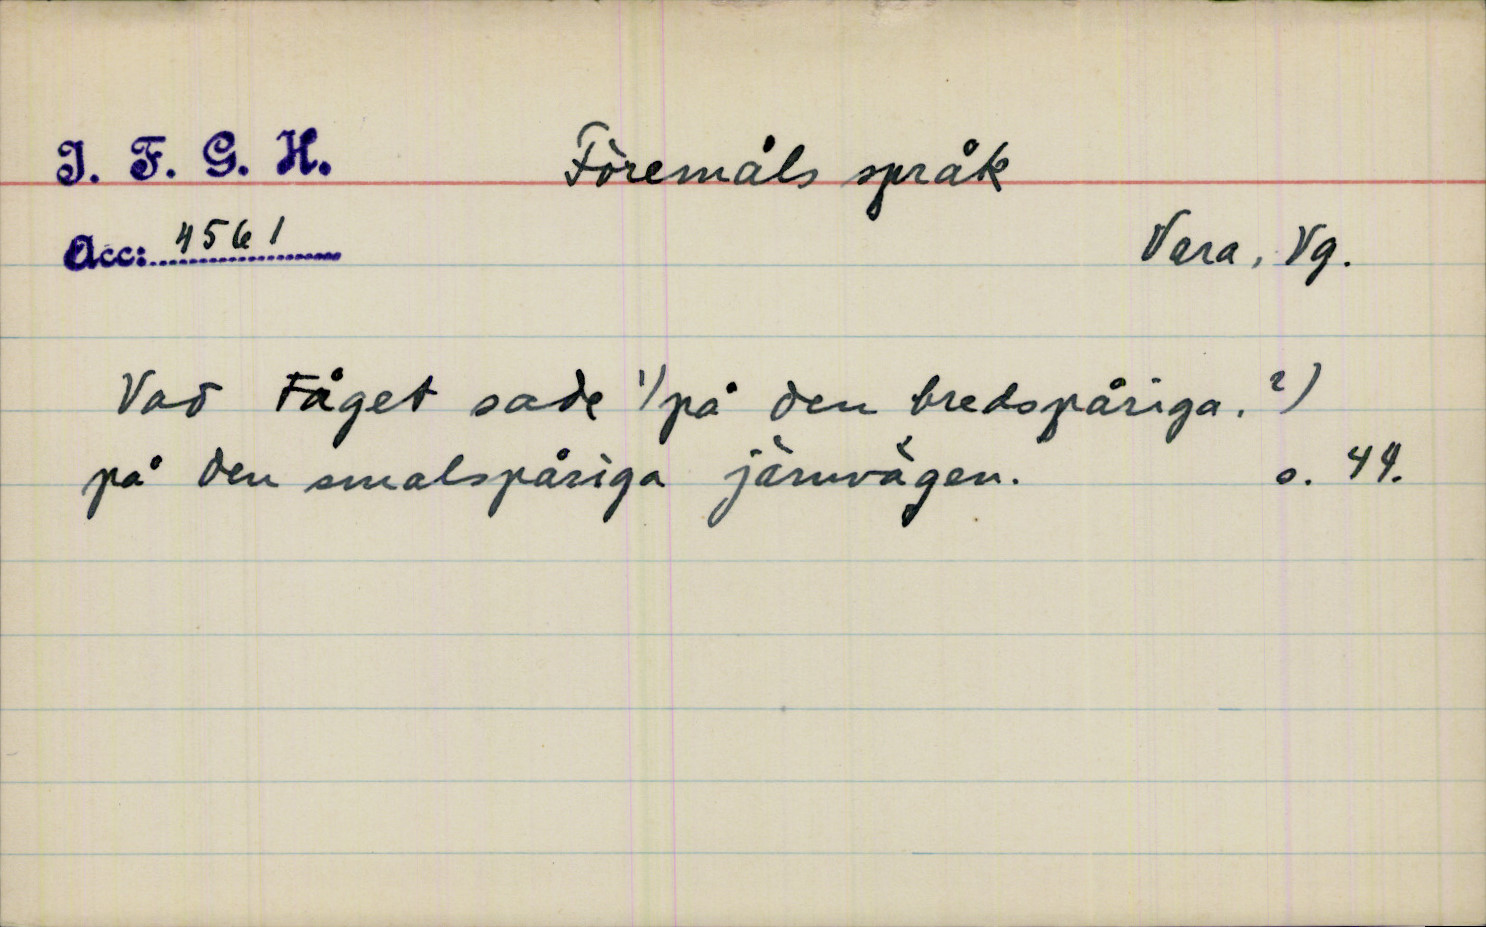 I. F. G. H.
Föremåls språk
Acc: 4561
Vara, Vg.
Vad Tåget sade 1) på den bredspåriga. 2)
på den smalspåriga järnvägen. s. 44.